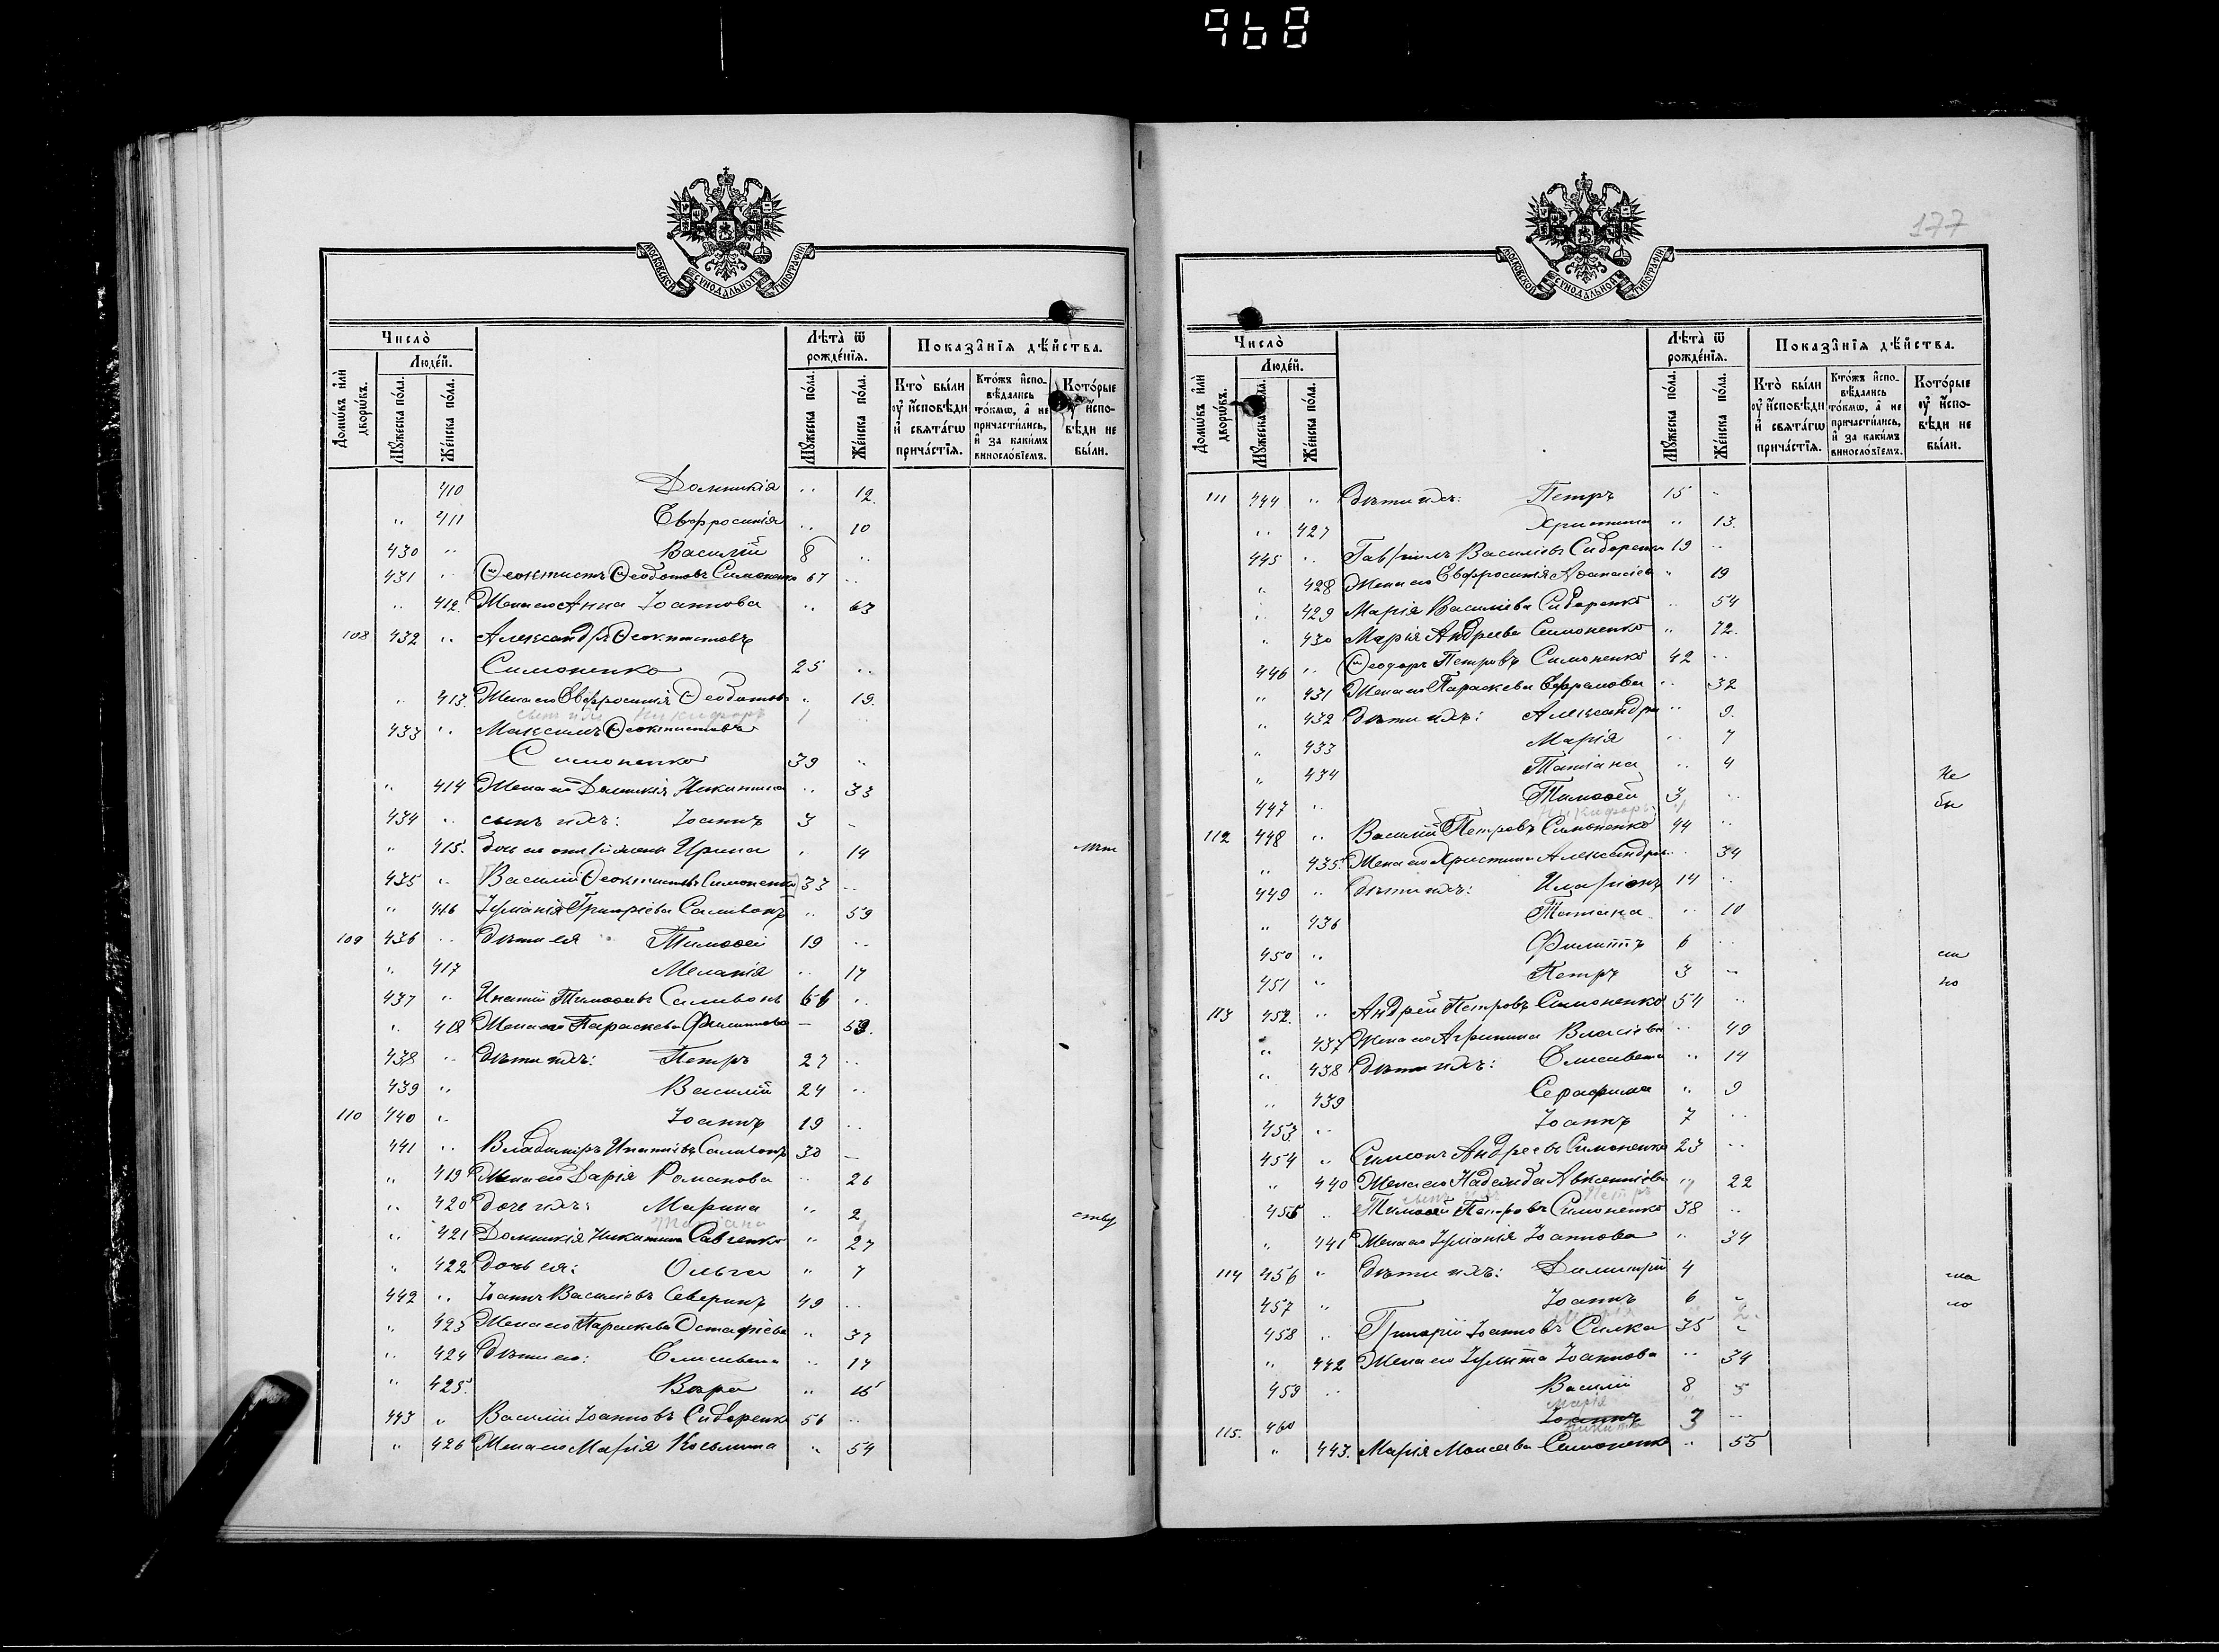 968
МОСКОВСКОЙ СΥНОДАЛЬНОЙ ТИПОГРАФІИ
Число̀
Лѣта̀ ѿ рожде́нїѧ.
Показа̑нїѧ дѣ́йства.
Домѡ́въ и҆лѝ дворѡ́въ.
Люде́й.
Мꙋжеска по́ла.
Же́нска по́ла.
Мꙋжеска по́ла.
Же́нска по́ла.
Кто̀ бы́ли ᲂу҆ и҆сповѣди и҆ свята́гѡ прича́стїѧ.
Кто́жъ и҆сповѣдались то́кмѡ, а҆ не причасти́лись, и҆ за каки́мъ винослов́їемъ.
Кото́рые ᲂу҆ и҆сповѣди не бы́ли.
410 Домникія " 12.
" 411 Евфросинія " 10
430 " Василій 8 "
431 " Ѳеоктистъ Ѳеодотовъ Симоненко 67 "
" 412. Жена его Анна Іоаннова " 63
108 432 " Александръ Ѳеоктистовъ
Симоненко 25 "
" 413. Жена его Евфросинія Ѳеодотова " 19.
сынъ ихъ Никифоръ 1
433 " Максимъ Ѳеоктистовъ
Симоненко 39 "
" 414 Жена его Домникія Никитина " 33
434 " сынъ ихъ: Іоаннъ 3 -
" 415. Ирина " 14
435 " Василій Ѳеоктистовъ Симоненко 33 "
" 416 Іуліанія Григоріева Саливонъ " 59
109 436 " дѣти ея Тимоѳей 19 "
" 417 Меланія " 17
437 " Игнатій Тимоѳеевъ Саливонъ 66 "
" 418 Жена его Параскева Филиппова - 59.
438 " дѣти ихъ: Петръ 27 "
439 " Василій 24 "
110 440 " Іоаннъ 19 "
441 " Владиміръ Игнатіевъ Саливонъ 30 -
" 419 Жена его Дарія Романова " 26
" 420 дочь ихъ: Марина " 2
Татіана 1
" 421 Домникія Никитина Савченко " 27
" 422 дочь ея: Ольга " 7
442 " Іоаннъ Василіевъ Северинъ 49 "
" 423 Жена его Параскева Остафіева " 37
" 424 Дѣти его: Елисавета " 17
" 425. Вѣра " 15
443 " Василій Іоанновъ Сидоренко 56 "
" 426 Жена его Марія Косьмина " 54
177
МОСКОВСКОЙ СΥНОДАЛЬНОЙ ТИПОГРАФІИ
Число̀
Лѣта̀ ѿ рожде́нїѧ.
Показа̑нїѧ дѣ́йства.
Домѡ́въ и҆лѝ дворѡ́въ.
Люде́й.
Мꙋжеска по́ла.
Же́нска по́ла.
Мꙋжеска по́ла.
Же́нска по́ла.
Кто̀ бы́ли ᲂу҆ и҆сповѣди и҆ свята́гѡ прича́стїѧ.
Кто́жъ и҆сповѣдались то́кмѡ, а҆ не причасти́лись, и҆ за каки́мъ винослов́їемъ.
Кото́рые ᲂу҆ и҆сповѣди не бы́ли.
111 444 " Дѣти ихъ: Петръ 15 "
" 427 Христина " 13.
445 " Гавріилъ Василіевъ Сидоренко 19 "
" 428 Жена его Евфросинія Аѳанасіева " 19
" 429 Марія Василіева Сидоренко " 54
" 430 Марія Андреева Симоненко " 72.
446 " Ѳеодоръ Петровъ Симоненко 42 "
" 431 Жена его Параскева Ефремова " 32
" 432 Дѣти ихъ: Александра " 9.
" 433 Марія " 7
" 434 Татіана " 4
447 " Тимоѳей 3 "
Никифоръ 1
112 448 " Василій Петровъ Симоненко 44 "
" 435. Жена его Христина Александрова " 34
449 " Дѣти ихъ: Иларіонъ 14 "
" 436 Татіана " 10
450 " Филиппъ 6 "
451 " Петръ 3 "
113 452. " Андрей Петровъ Симоненко 54 "
" 437 Жена его Агрипина Власіева " 49
" 438 Дѣти ихъ: Елисавета " 14
" 439 Серафима " 9
453 " Іоаннъ 7 "
454 " Симеонъ Андреевъ Симоненко 23 "
" 440 Жена его Надежда Авксентіева " 22
сынъ ихъ Петръ
455 " Тимоѳей Петровъ Симоненко 38 "
" 441 Жена его Іуліанія Іоаннова " 34
114 456 " Дѣти ихъ: Димитрій 4
457 " Іоаннъ 6 "
458 " Григорій Іоанновъ Силка 35 "
" 442 Жена его Іулитта Іоаннова " 34
459 " Василій 8
Марія
115. 460 Іоаннъ 3 "
Никита
" 443. Марія Моисеева Симоненко " 55